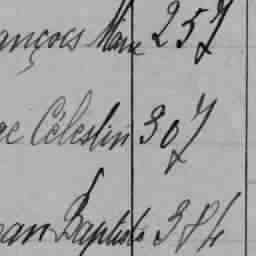 ançois Marie 257
ge Célestin 307
ean Baptiste 384